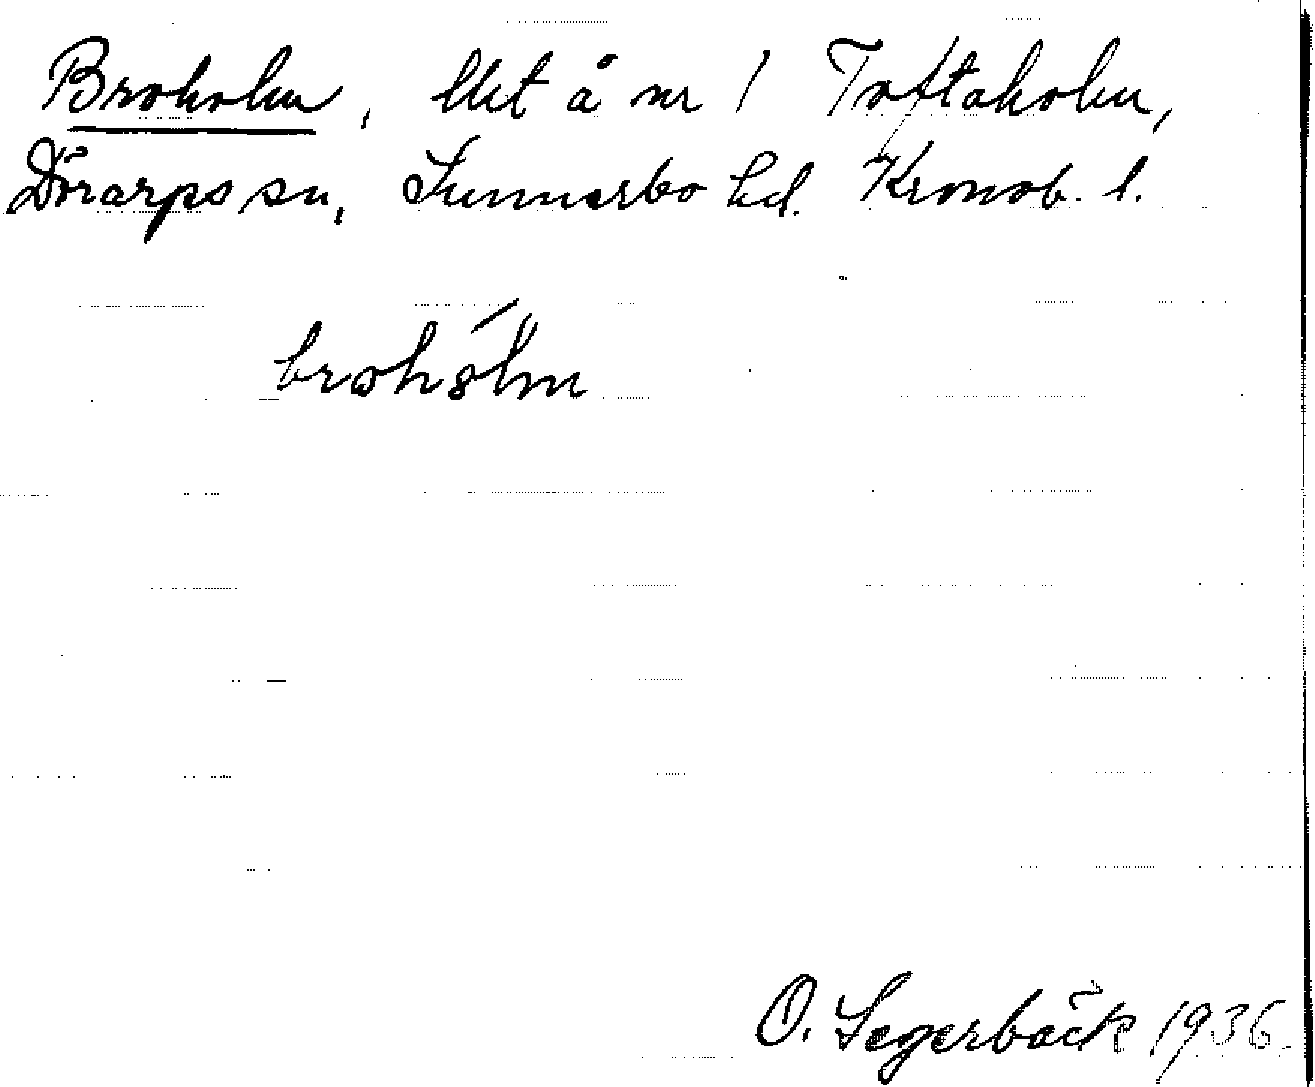 Broholm, lht å nr 1 Toftaholm,
Dörarps sn, Sunnerbo hd. Kronob. l.
brohólm
O. Segerbäck 1936